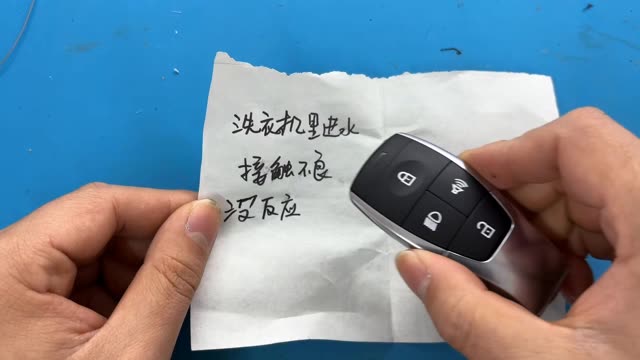 洗衣机里进水
接触不良
没反应